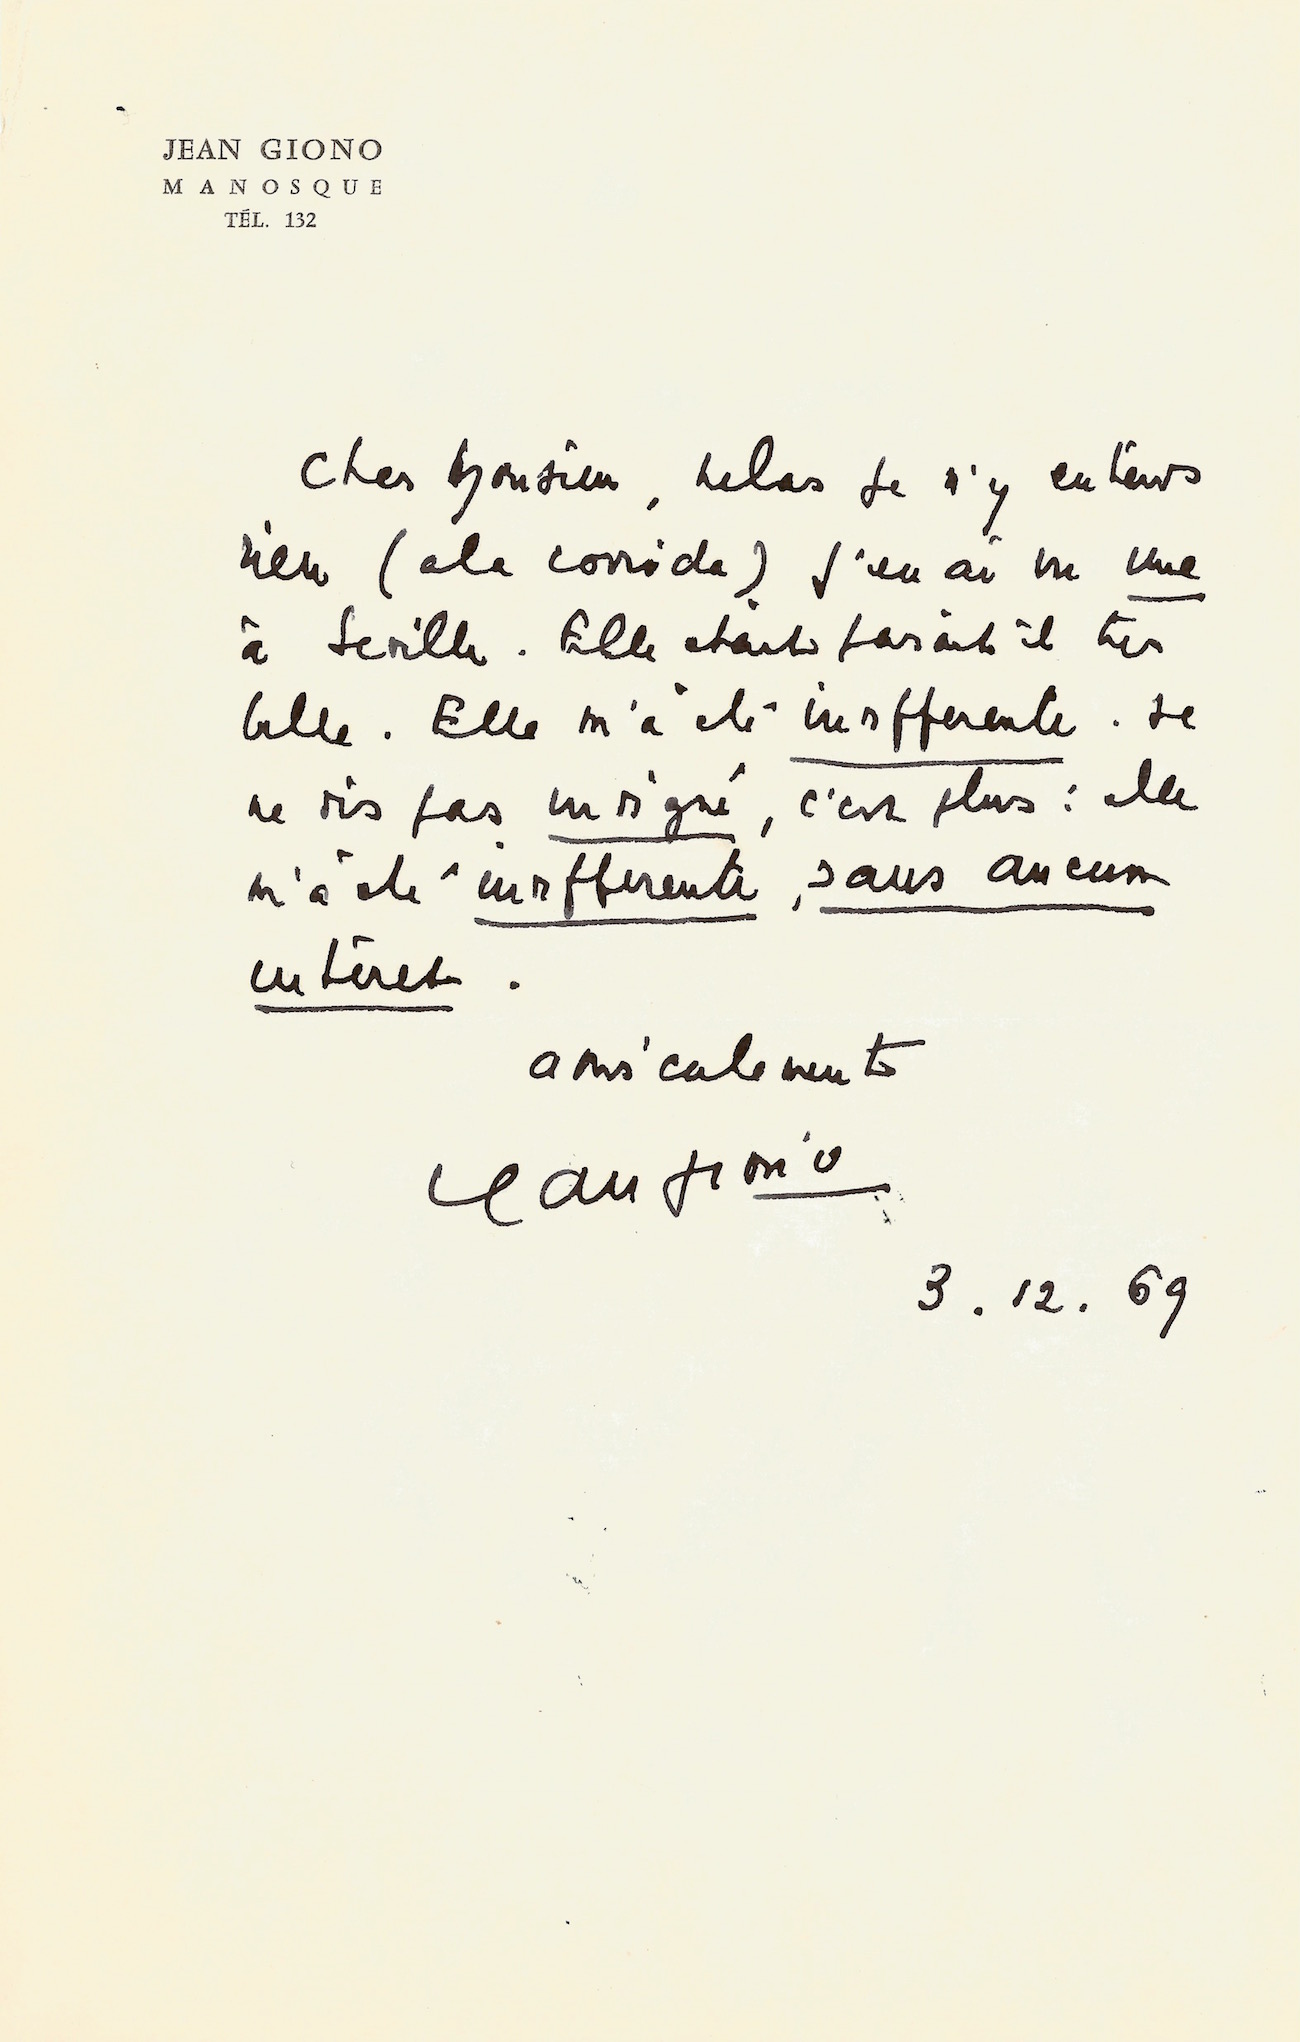 JEAN GIONO
MANOSQUE
TÉL. 132
Cher Monsieur, helas je n'y entends
rien (a la corrida) J'en ai vu une
à Seville. Elle était parait il très
belle. Elle m'a été indifferente. Je
ne dis pas indigné, c'est plus : elle
m'a été indifferente, sans aucun
intéret.
amicalement
Jean Giono
3.12.69